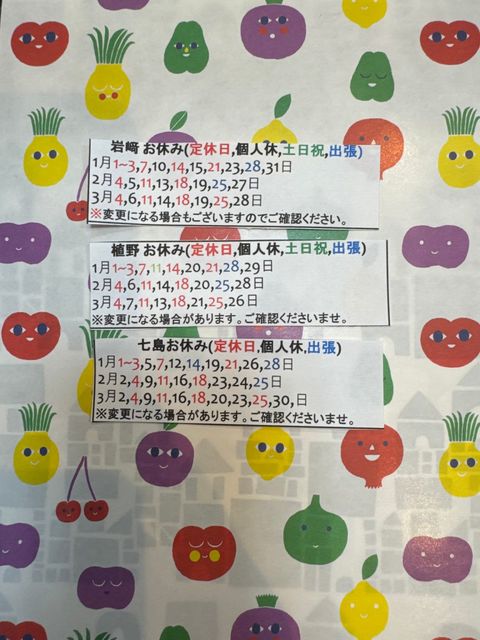 岩﨑 お休み(定休日,個人休,土日祝,出張)
1月1~3,7,10,14,15,21,23,28,31日
2月4,5,11,13,18,19,25,27日
3月4,6,11,14,18,19,25,28日
※変更になる場合もございますのでご確認ください。
植野 お休み(定休日,個人休,土日祝,出張)
1月1~3,7,11,14,20,21,28,29日
2月4,6,11,14,18,20,25,28日
3月4,7,11,13,18,21,25,26日
※変更になる場合があります。ご確認くださいませ。
七島お休み(定休日,個人休,出張)
1月1~3,5,7,12,14,19,21,26,28日
2月2,4,9,11,16,18,23,24,25日
3月2,4,9,11,16,18,20,23,25,30,日
※変更になる場合があります。ご確認くださいませ。